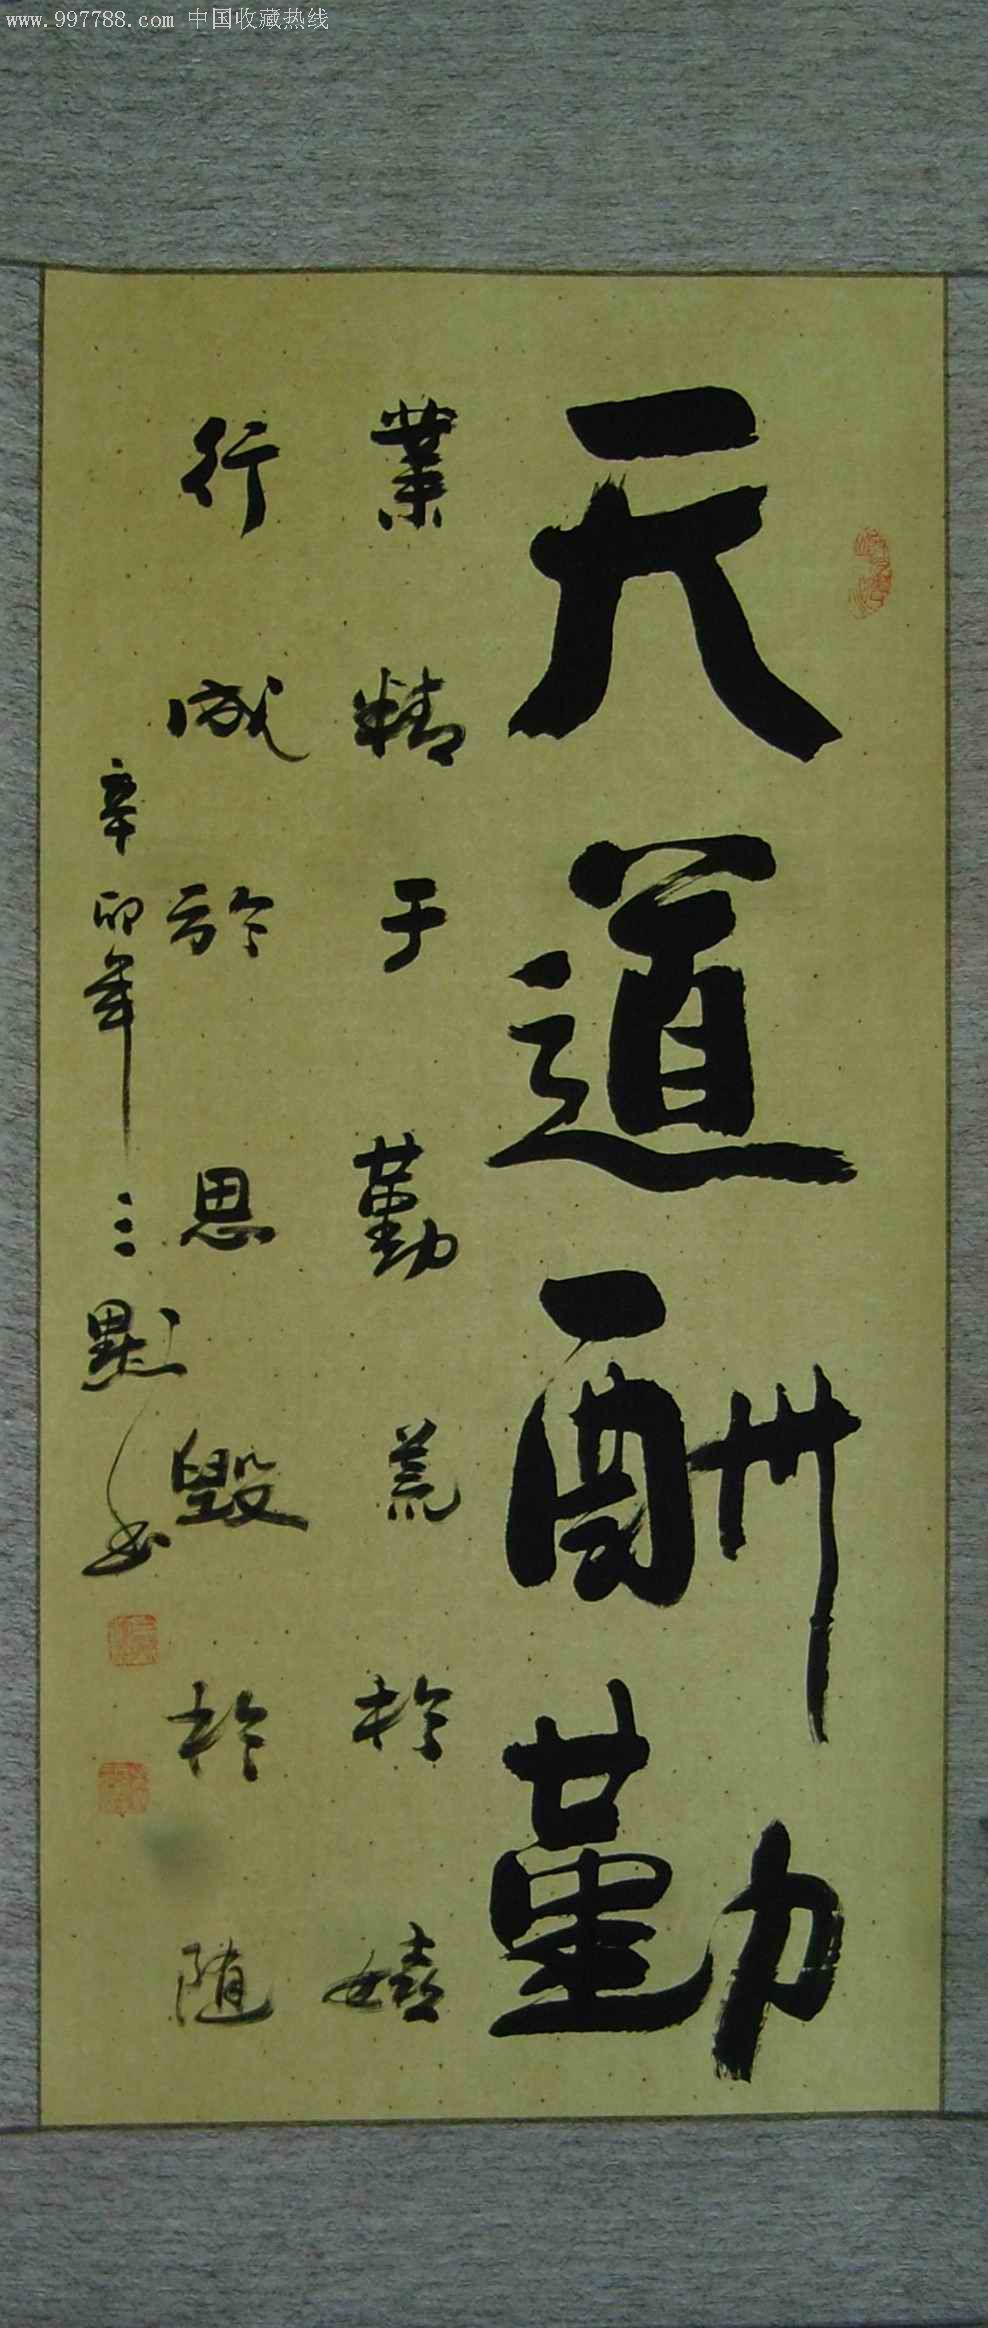 www.997788.com 中国收藏热线
天道酬勤
業精于勤荒於嬉
行成於思毁於随
辛卯年三默书